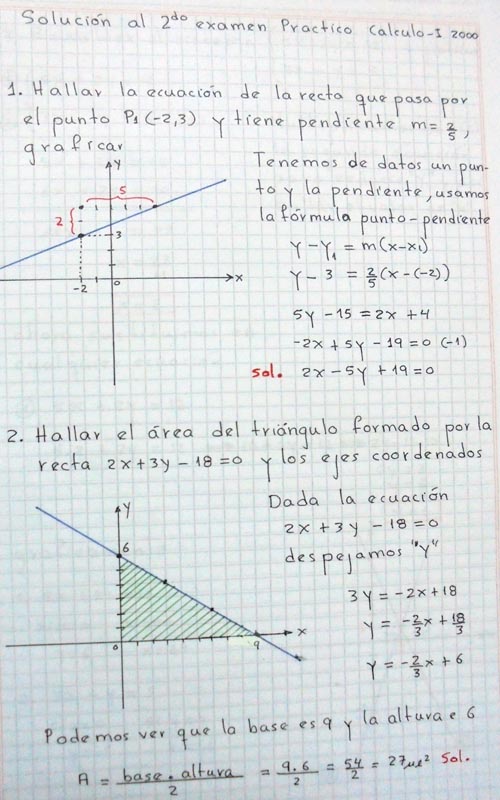 Solución al 2do examen Practico Calculo-I 2000
1. Hallar la ecuación de la recta que pasa por
el punto P1(-2,3) y tiene pendiente m=2/5,
graficar
Y
5
2
3
-2
0
X
Tenemos de datos un pun-
to y la pendiente, usamos
la fórmula punto-pendiente
Y-Y1 = m(x-x1)
Y-3 = 2/5(x-(-2))
5y-15=2x+4
-2x+5y-19=0 (-1)
sol. 2x-5y+19=0
2. Hallar el área del triángulo formado por la
recta 2x+3y-18=0 y los ejes coordenados
Y
6
0
9
X
Dada la ecuación
2x+3y-18=0
despejamos "Y"
3y=-2x+18
y=-2/3x+18/3
y=-2/3x+6
Podemos ver que la base es 9 y la altura e 6
A = base.altura/2 = 9.6/2 = 54/2 = 27 m² Sol.